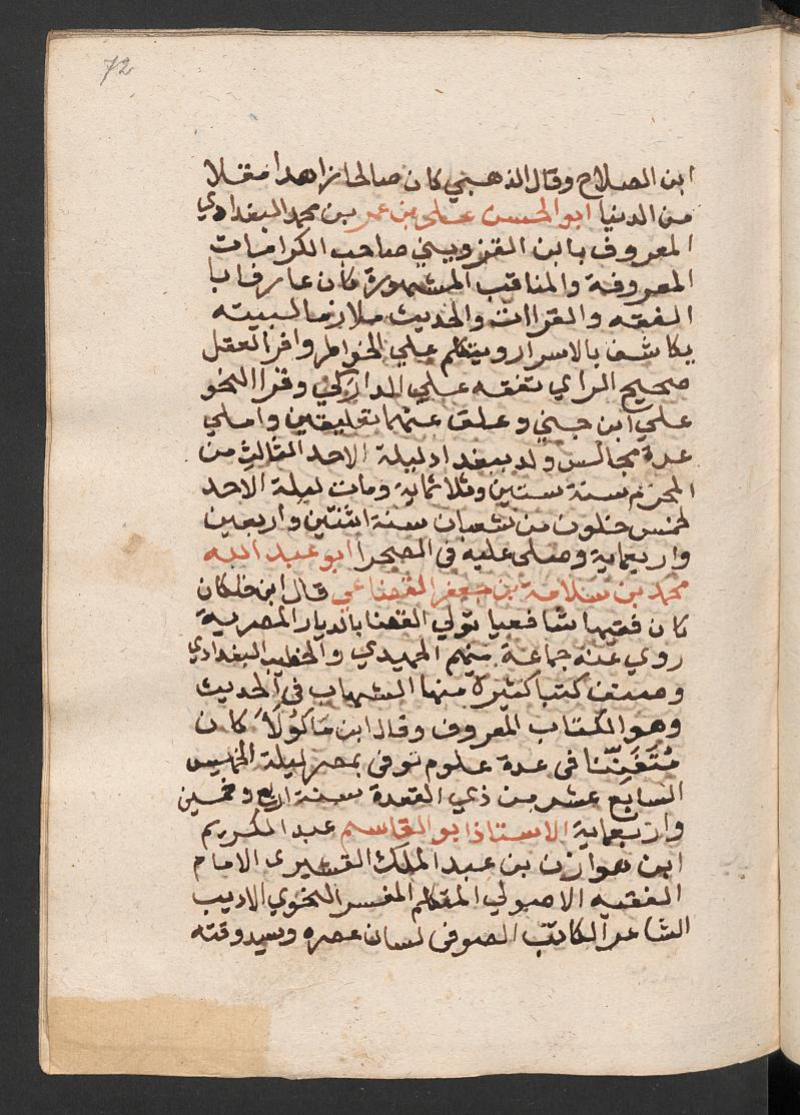 72
ابن الصلاح وقال الذهبي كان صالحا زاهدا مقلا
من الدنيا ابو الحسن على بن عمر بن محمد البغدادي
المعروف بابن القزويني صاحب الكرامات
المعروفة والمناقب المشهورة كان عارفا با
الفقه والقراات والحديث ملازما لبيته
يكاشف بالاسرار ويتكلم علي الخواطر وافر العقل
صحيح الراي تفقه علي الداركي وقرا النحو
علي ابن جني وعلق عنهما تعليقين واملي
عدة مجالس ولد ببغداد ليلة الاحد الثالث من
المحرم سنة ستين وثلاثماية ومات ليلة الاحد
لخمس خلون من شعبان سنة اثنتين واربعين
واربعماية وصلى عليه فى الصحرا ابو عبد الله
محمد بن سلامة بن جعفر القضاعي قال ابن خلكان
كان فقيها شافعيا تولي القضا بالديار المصرية
روي عنه جماعة منهم الحميدي والخطيب البغدادي
وصنف كتبا كثيرة منها الشهاب فى الحديث
وهو الكتاب المعروف وقال ابن مَاكُولَا كان
مُتَفَنِّنا فى عدة علوم توفى بمصر ليلة الخميس
السابع عشر من ذي القعدة سنة اربع وخمسين
واربعماية الاستاذ ابو القاسم عبد الكريم
ابن هوازن بن عبد الملك القشيرى الامام
الفقيه الاصولي المتكلم المفسر النحوي الاديب
الشاعر الكاتب الصوفى لسان عصره وسيد وقته